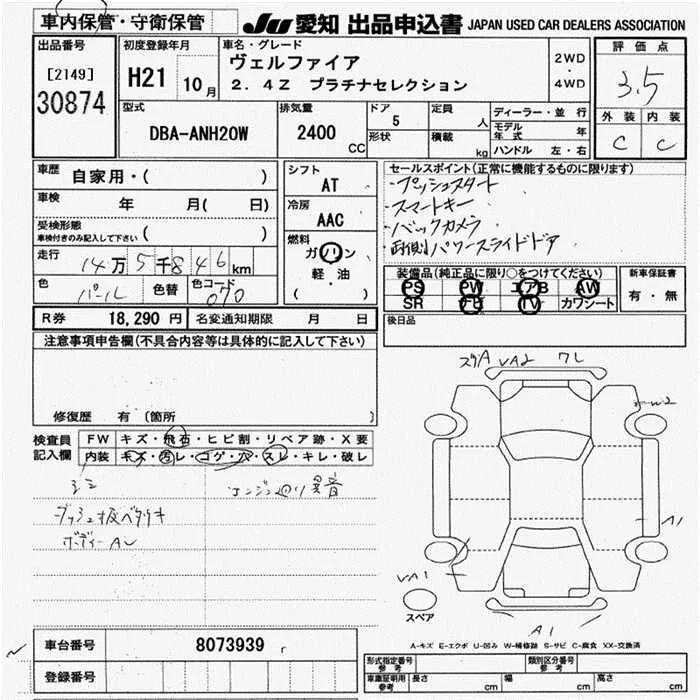 車内保管・守衛保管
JU 愛知 出品申込書 JAPAN USED CAR DEALERS ASSOCIATION
出品番号
[2149]
30874
初度登録年月
H21 10月
車名・グレード
ヴェルファイア
2.4Z プラチナセレクション
2WD
・
4WD
評価点
3.5
外装 内装
C C
型式
DBA-ANH20W
排気量
2400
CC
ドア
5
形状
定員
人
積載
kg
ディーラー・並行
モデル年式 年
ハンドル 左・右
車歴
自家用・( )
車検
年 月( 日)
受検形態
車検付きのみ記入して下さい ( )
走行
14万5千846km
色
パール
色替
色コード
070
シフト
AT
冷房
AAC
燃料
ガソリン
軽・油
( )
セールスポイント(正常に機能するものに限ります)
・プッシュスタート
・スマートキー
・バックカメラ
・両側パワースライドドア
装備品(純正品に限り○をつけてください)
PS PW エアB AW
SR ナビ TV カワシート
新車保証書
有・無
R券 18,290円
名変通知期限 月 日
後日品
注意事項申告欄(不具合内容等は具体的に記入して下さい)
修復歴 有 〔箇所 〕
検査員
記入欄
FW キズ・飛石・ヒビ割・リペア跡・X要
内装 キズ・汚レ・コゲ・穴・スレ・キレ・破レ
シミ
エンジン廻り異音
ダッシュ板ベタツキ
ボディーAU
スリA VA2 フレ
W2
A1
VA1
スペア
A1
A-キズ E-エクボ U-凹み W-補修跡 S-サビ C-腐食 XX-交換済
車台番号
8073939
登録番号
形式指定番号
参考
類別区分番号
参考
車庫証明用
参考
長さ cm
幅 cm
高さ cm